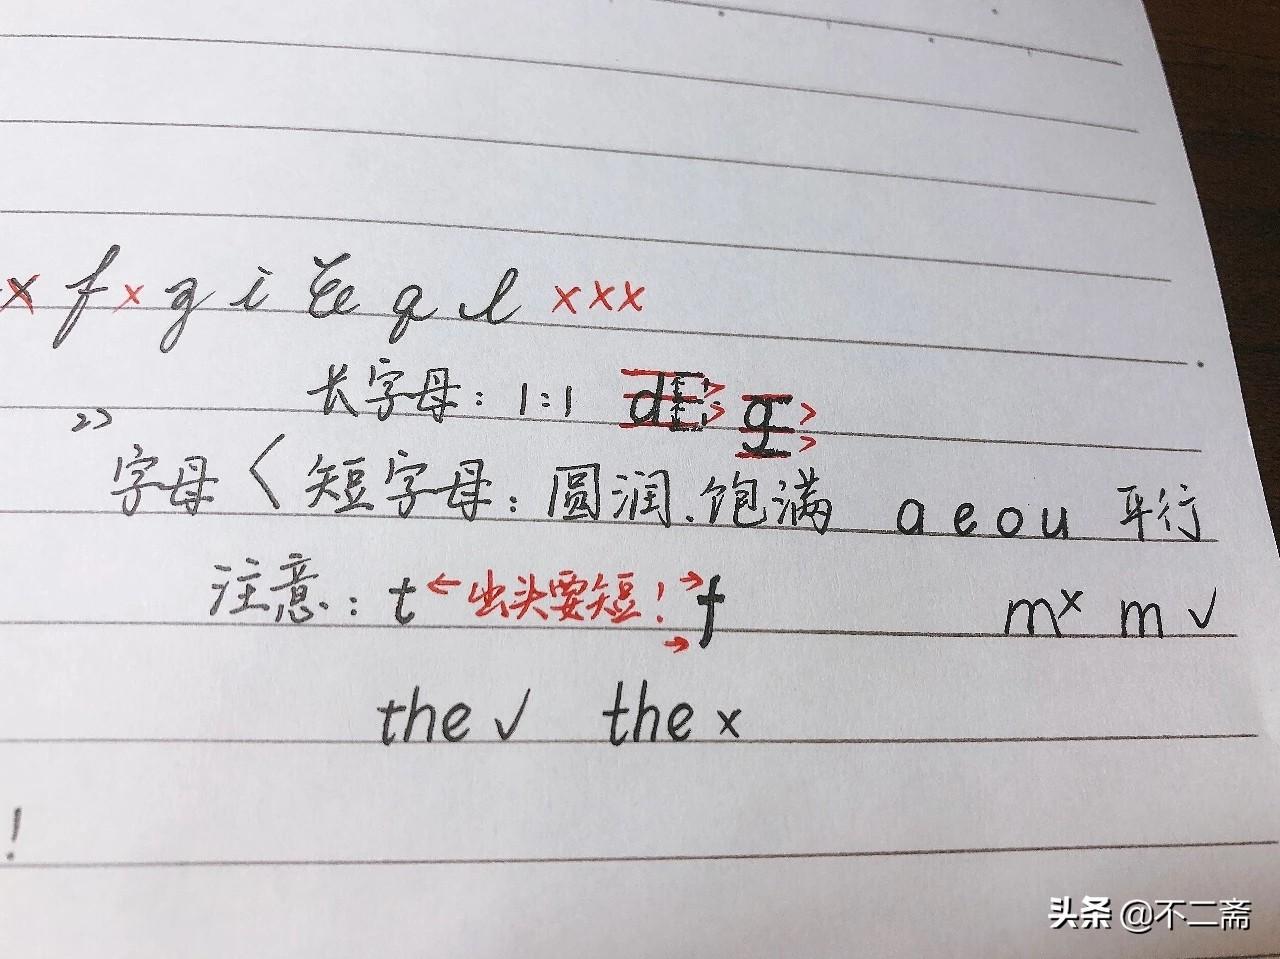 x f x g i q l xxx
长字母：1:1 d g
2)
字母〈 短字母：圆润.饱满 a e o u 平行
注意：t ←出头要短！→ f m x m ✓
the ✓ the x
!
头条 @不二斋